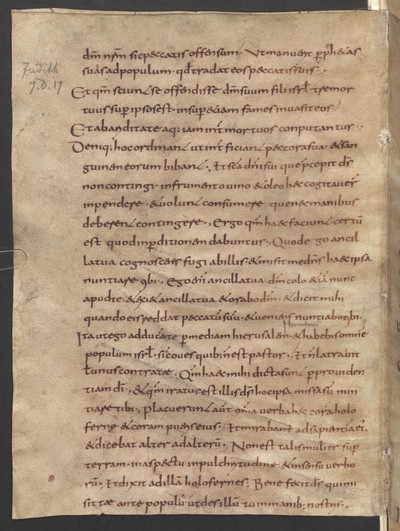 dm̄ nr̄m sic peccatis offensum. Ut monuerit p pphetas
suos ad populum. qd tradat eos p peccatis suis.
Judith
Et qm̄ sciunt se offendisse dm̄ suum filii isrl̄. tremor
tuus sup ipsos est. insup etiam fames invasit eos
Et ab ariditate aquae iam int mortuos conputantur.
Deniq; hoc ordinant ut int ficiant pecora sua. & san
guinem eorum bibant. Et sc̄a dn̄i sui quae p̄cepit ds̄
non contingi. in frumento vino & oleo haec cogitaver
inpendere. & volunt consumere quae nec manibus
deberent contingere. Ergo qm̄ haec faciunt certū
est quod in p ditionem dabuntur. Quod ego ancil
la tua cognoscens fugi ab illis & misit me dn̄s haec ipsa
nuntiare tibi. Ego enī ancilla tua dm̄ colo & iā nunc
apud te & exi& ancilla tua & orabo dm̄. & dic& mihi
quando eis reddat peccatū suū. & veniens nuntiabo tibi.
Ita ut ego adducā te p mediam hierusalem & habebis omne
populum isrl̄. sic oves quib; n̄ est pastor. Et n̄ latrabit
t unus contra te. Qm̄ haec mihi dicta sunt p providen
tiam dī. & qm̄ iratus est illis ds̄ hoc ipsa missa sū nun
tiare tibi. Placuerunt aūt om̄ia verba haec corā holo
ferne & coram pueris eius. Et mirabant ad sapientiā ei
& dicebat alter ad alterū. Non est talis mulier sup
terram. in aspectu in pulchritudine & in sensu verbo
rū. Et dixit ad illā holofernes. Bene fecit ds̄ qui mi
sit te ante populū ut des illū tu in manib; nostris.